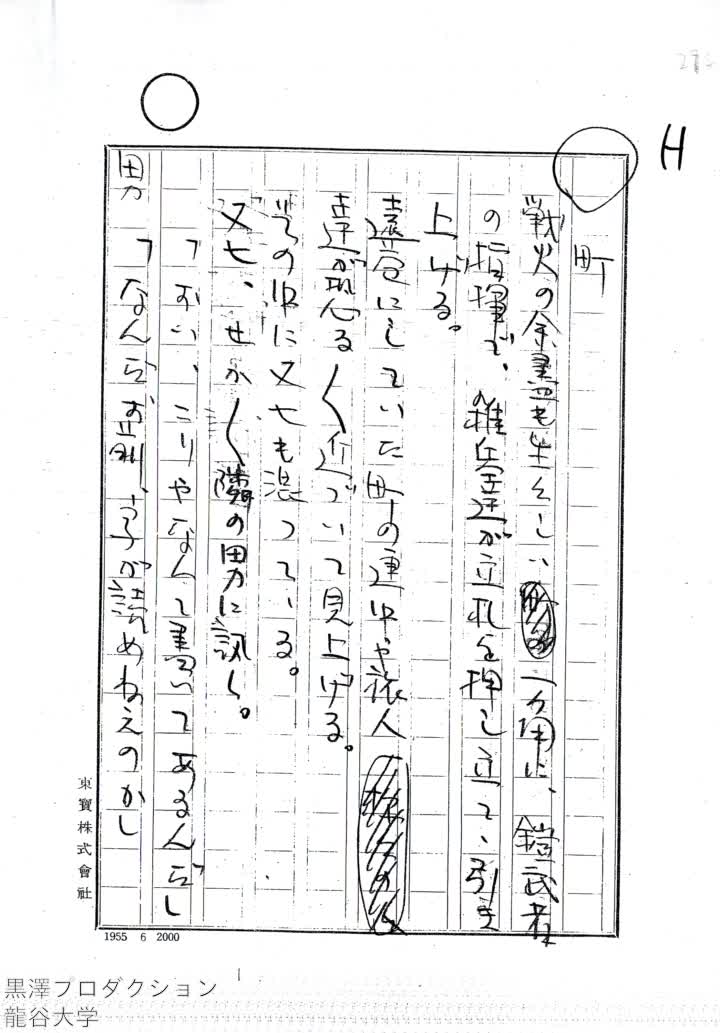 H
町
戦火の余燼も生々しい一角に、鎧武者
の指揮で、雑兵達が立札を押し立て、引き
上げる。
遠巻にしていた町の連中や旅人
達が恐る〱近づいて見上げる。
その中に又七も混っている。
又七、せか〱隣の男に訊く。
「おい、こりゃなんて書いてあるんだ」
男「なんだお前、字が読めねえのか」
東寶株式會社
1955 6 2000
黒澤プロダクション
龍谷大学